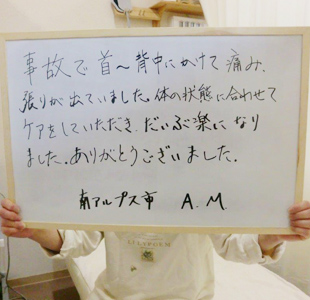 事故で首〜背中にかけて痛み、
張りが出ていました。体の状態に合わせて
ケアをしていただき、だいぶ楽になり
ました。ありがとうございました。
南アルプス市 A.M.